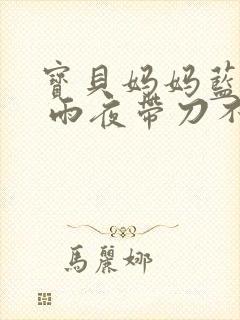 寶貝妈妈藍
雨夜帶刀不
馬麗娜